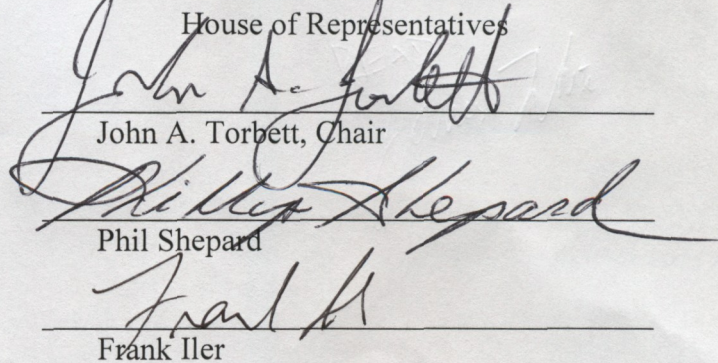 House of Representatives
John A. Torbett
John A. Torbett, Chair
Phillip Shepard
Phil Shepard
Frank Il
Frank Iler